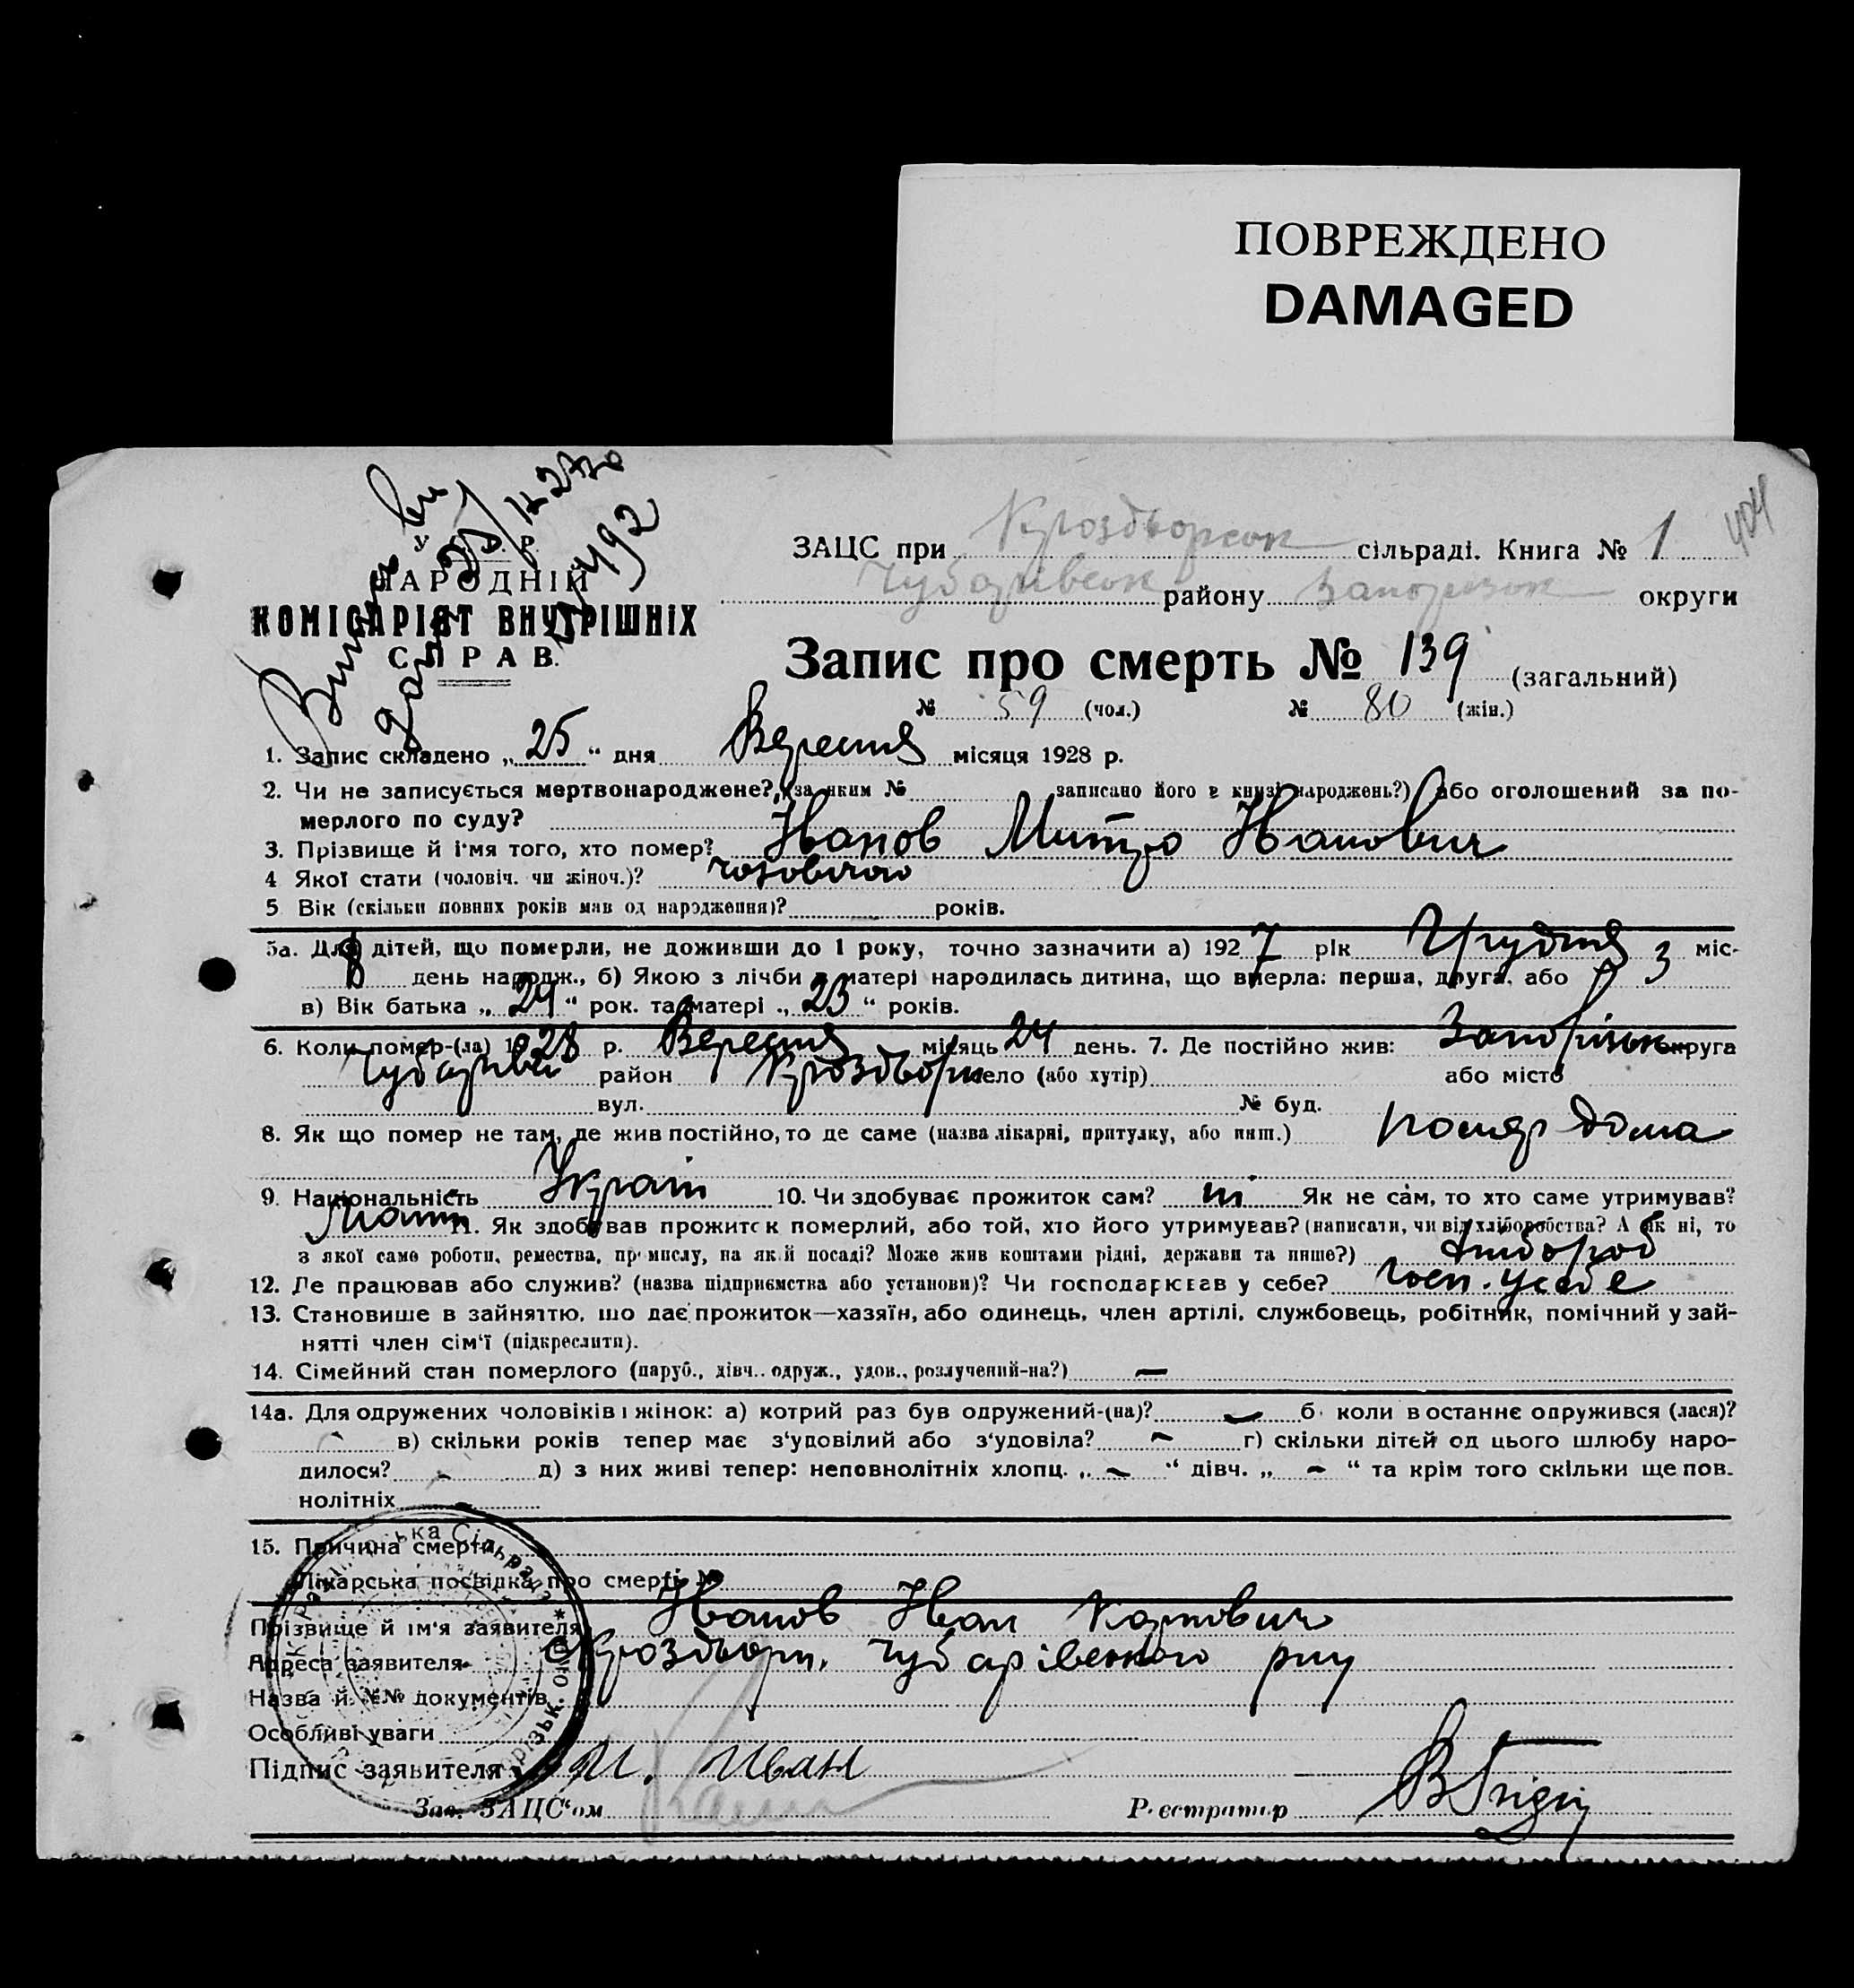 ПОВРЕЖДЕНО
DAMAGED
У.С.Р.Р.
НАРОДНІЙ
КОМІСАРІЯТ ВНУТРІШНІХ
СПРАВ.
ЗАЦС при сільраді. Книга № 1
Чубарівськ району Запорізьк округи
Запис про смерть № 139 (загальний)
№ 59 (чол.) № 80 (жін.)
1. Запис складено „25“ дня Вересня місяця 1928 р.
2. Чи не записується мертвонароджене? (за яким № записано його в книзі народжень?) або оголошений за по-
мерлого по суду?
3. Прізвище й ім'я того, хто помер? Іванов Митро Іванович
4 Якої стати (чоловіч. чи жіноч.)? чоловічого
5 Вік (скільки повних років мав од народження)? років.
5а. Для дітей, що померли, не доживши до 1 року, точно зазначити а) 1927 рік Грудня міс-
8 день народж., б) Якою з лічби в матері народилась дитина, що вмерла: перша, друга, або 3
в) Вік батька „24“ рок. та матері „23“ років.
6. Коли помер-(ла) 1928 р. Вересня місяць 24 день. 7. Де постійно жив: Запорізьк округа
Чубарівськ район село (або хутір) або місто
вул. № буд.
8. Як що помер не там, де жив постійно, то де саме (назва лікарні, притулку, або инш.) помер дома
9. Національність Україн 10. Чи здобуває прожиток сам? ні Як не сам, то хто саме утримував?
11. Як здобував прожиток померлий, або той, хто його утримував? (написати, чи від хліборобства? А як ні, то
з якої саме роботи, ремества, промислу, на якій посаді? Може жив коштами рідні, держави та инше?) хлібороб
12. Де працював або служив? (назва підприємства або установи)? Чи господарював у себе? госп. у себе
13. Становище в зайняттю, що дає прожиток—хазяїн, або одинець, член артілі, службовець, робітник, помічний у зай-
нятті член сім'ї (підкреслити).
14. Сімейний стан померлого (паруб., дівч.. одруж., удов., розлучений-на?) —
14а. Для одружених чоловіків і жінок: а) котрий раз був одружений-(на)? - б) коли востаннє одружився (лася)?
- в) скільки років тепер має з'удовілий або з'удовіла? - г) скільки дітей од цього шлюбу наро-
дилося? - д) з них живі тепер: неповнолітніх хлопц. „-“ дівч. „-“ та крім того скільки ще пов-
нолітніх -
15. Причина смерти
Лікарська посвідка про смерть №
Прізвище й ім'я заявителя Іванов Іван Карпович
Адреса заявителя Чубарівського р-ну
Назва й №№ документів
Особливі уваги
Підпис заявителя И. Иван
Зав. ЗАЦС'ом Реєстратор